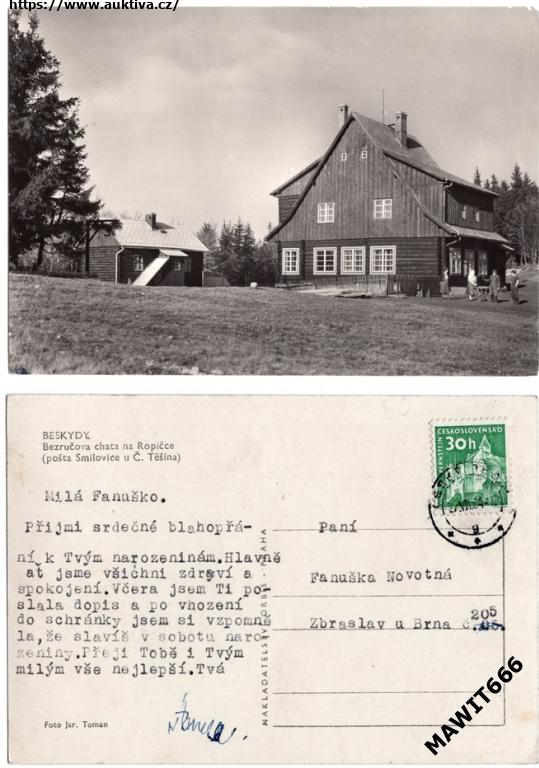 https://www.auktiva.cz/
BESKYDY.
Bezručova chata na Ropičce
(pošta Smilovice u Č. Těšína)
ČESKOSLOVENSKO
30h
PERNŠTEJN
Milá Fanuško.
Přijmi srdečné blahopřá-
ní k Tvým narozeninám.Hlavně
ať jsme všichni zdrávi a
spokojení.Včera jsem Ti po-
slala dopis a po vhození
do schránky jsem si vzpomně
la,že slavíš v sobotu naro
zeniny.Přeji Tobě i Tvým
milým vše nejlepší.Tvá
Foto Jar. Toman
NAKLADATELSTVÍ ORBIS - PRAHA
Paní
Fanuška Novotná
205
Zbraslav u Brna č.
MAWIT666